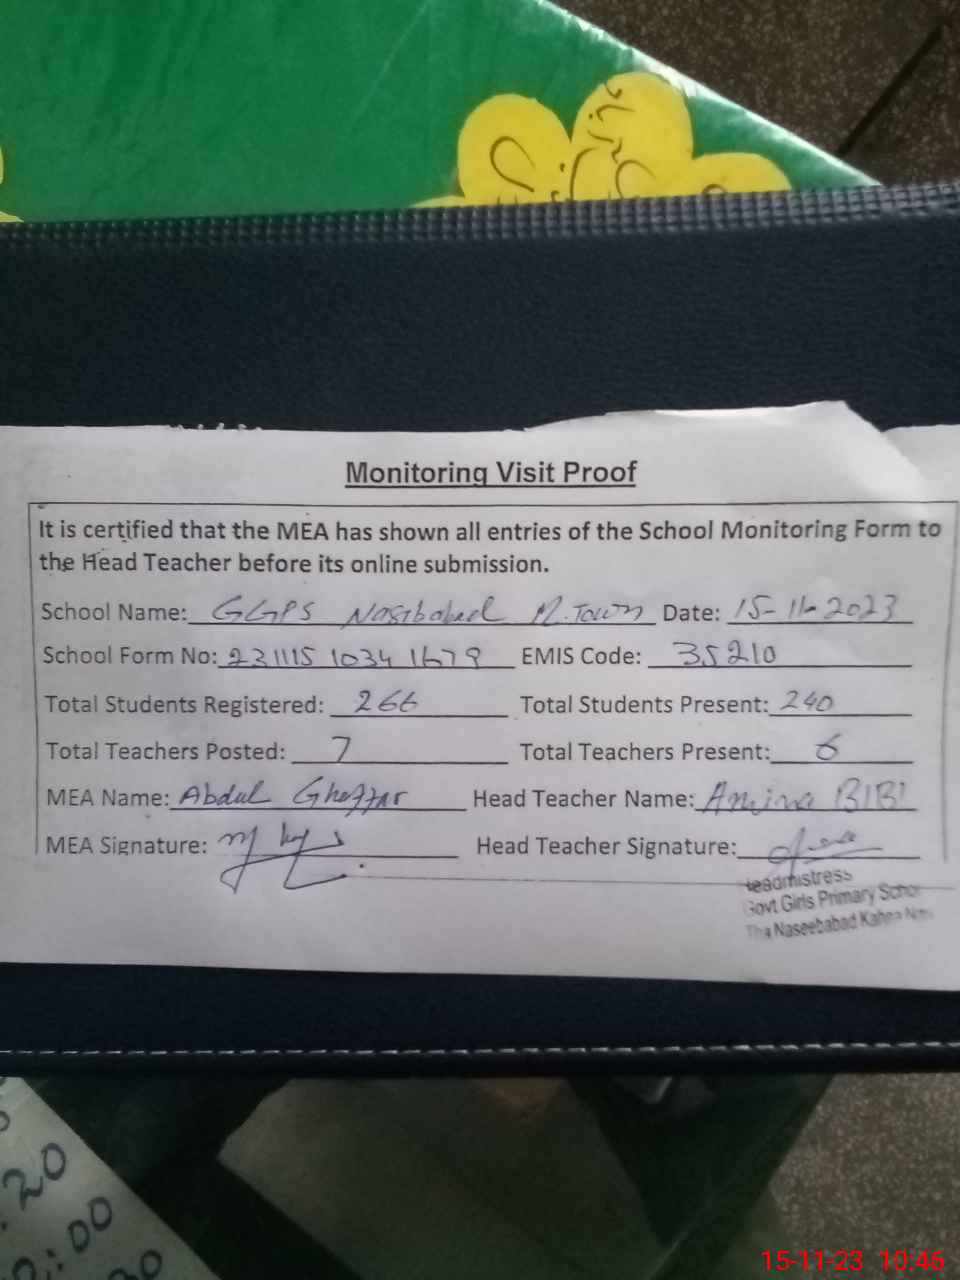 Monitoring Visit Proof
It is certified that the MEA has shown all entries of the School Monitoring Form to
the Head Teacher before its online submission.
School Name: GGPS Nasibabad M.Town Date: 15-11-2023
School Form No: 231115 1034 1679 EMIS Code: 35210
Total Students Registered: 266 Total Students Present: 240
Total Teachers Posted: 7 Total Teachers Present: 6
MEA Name: Abdul Ghaffar Head Teacher Name: Amina BIBI
MEA Signature: Head Teacher Signature:
Headmistress
Govt Girls Primary School
Naseebabad Kahna
20
:00
15-11-23 10:46